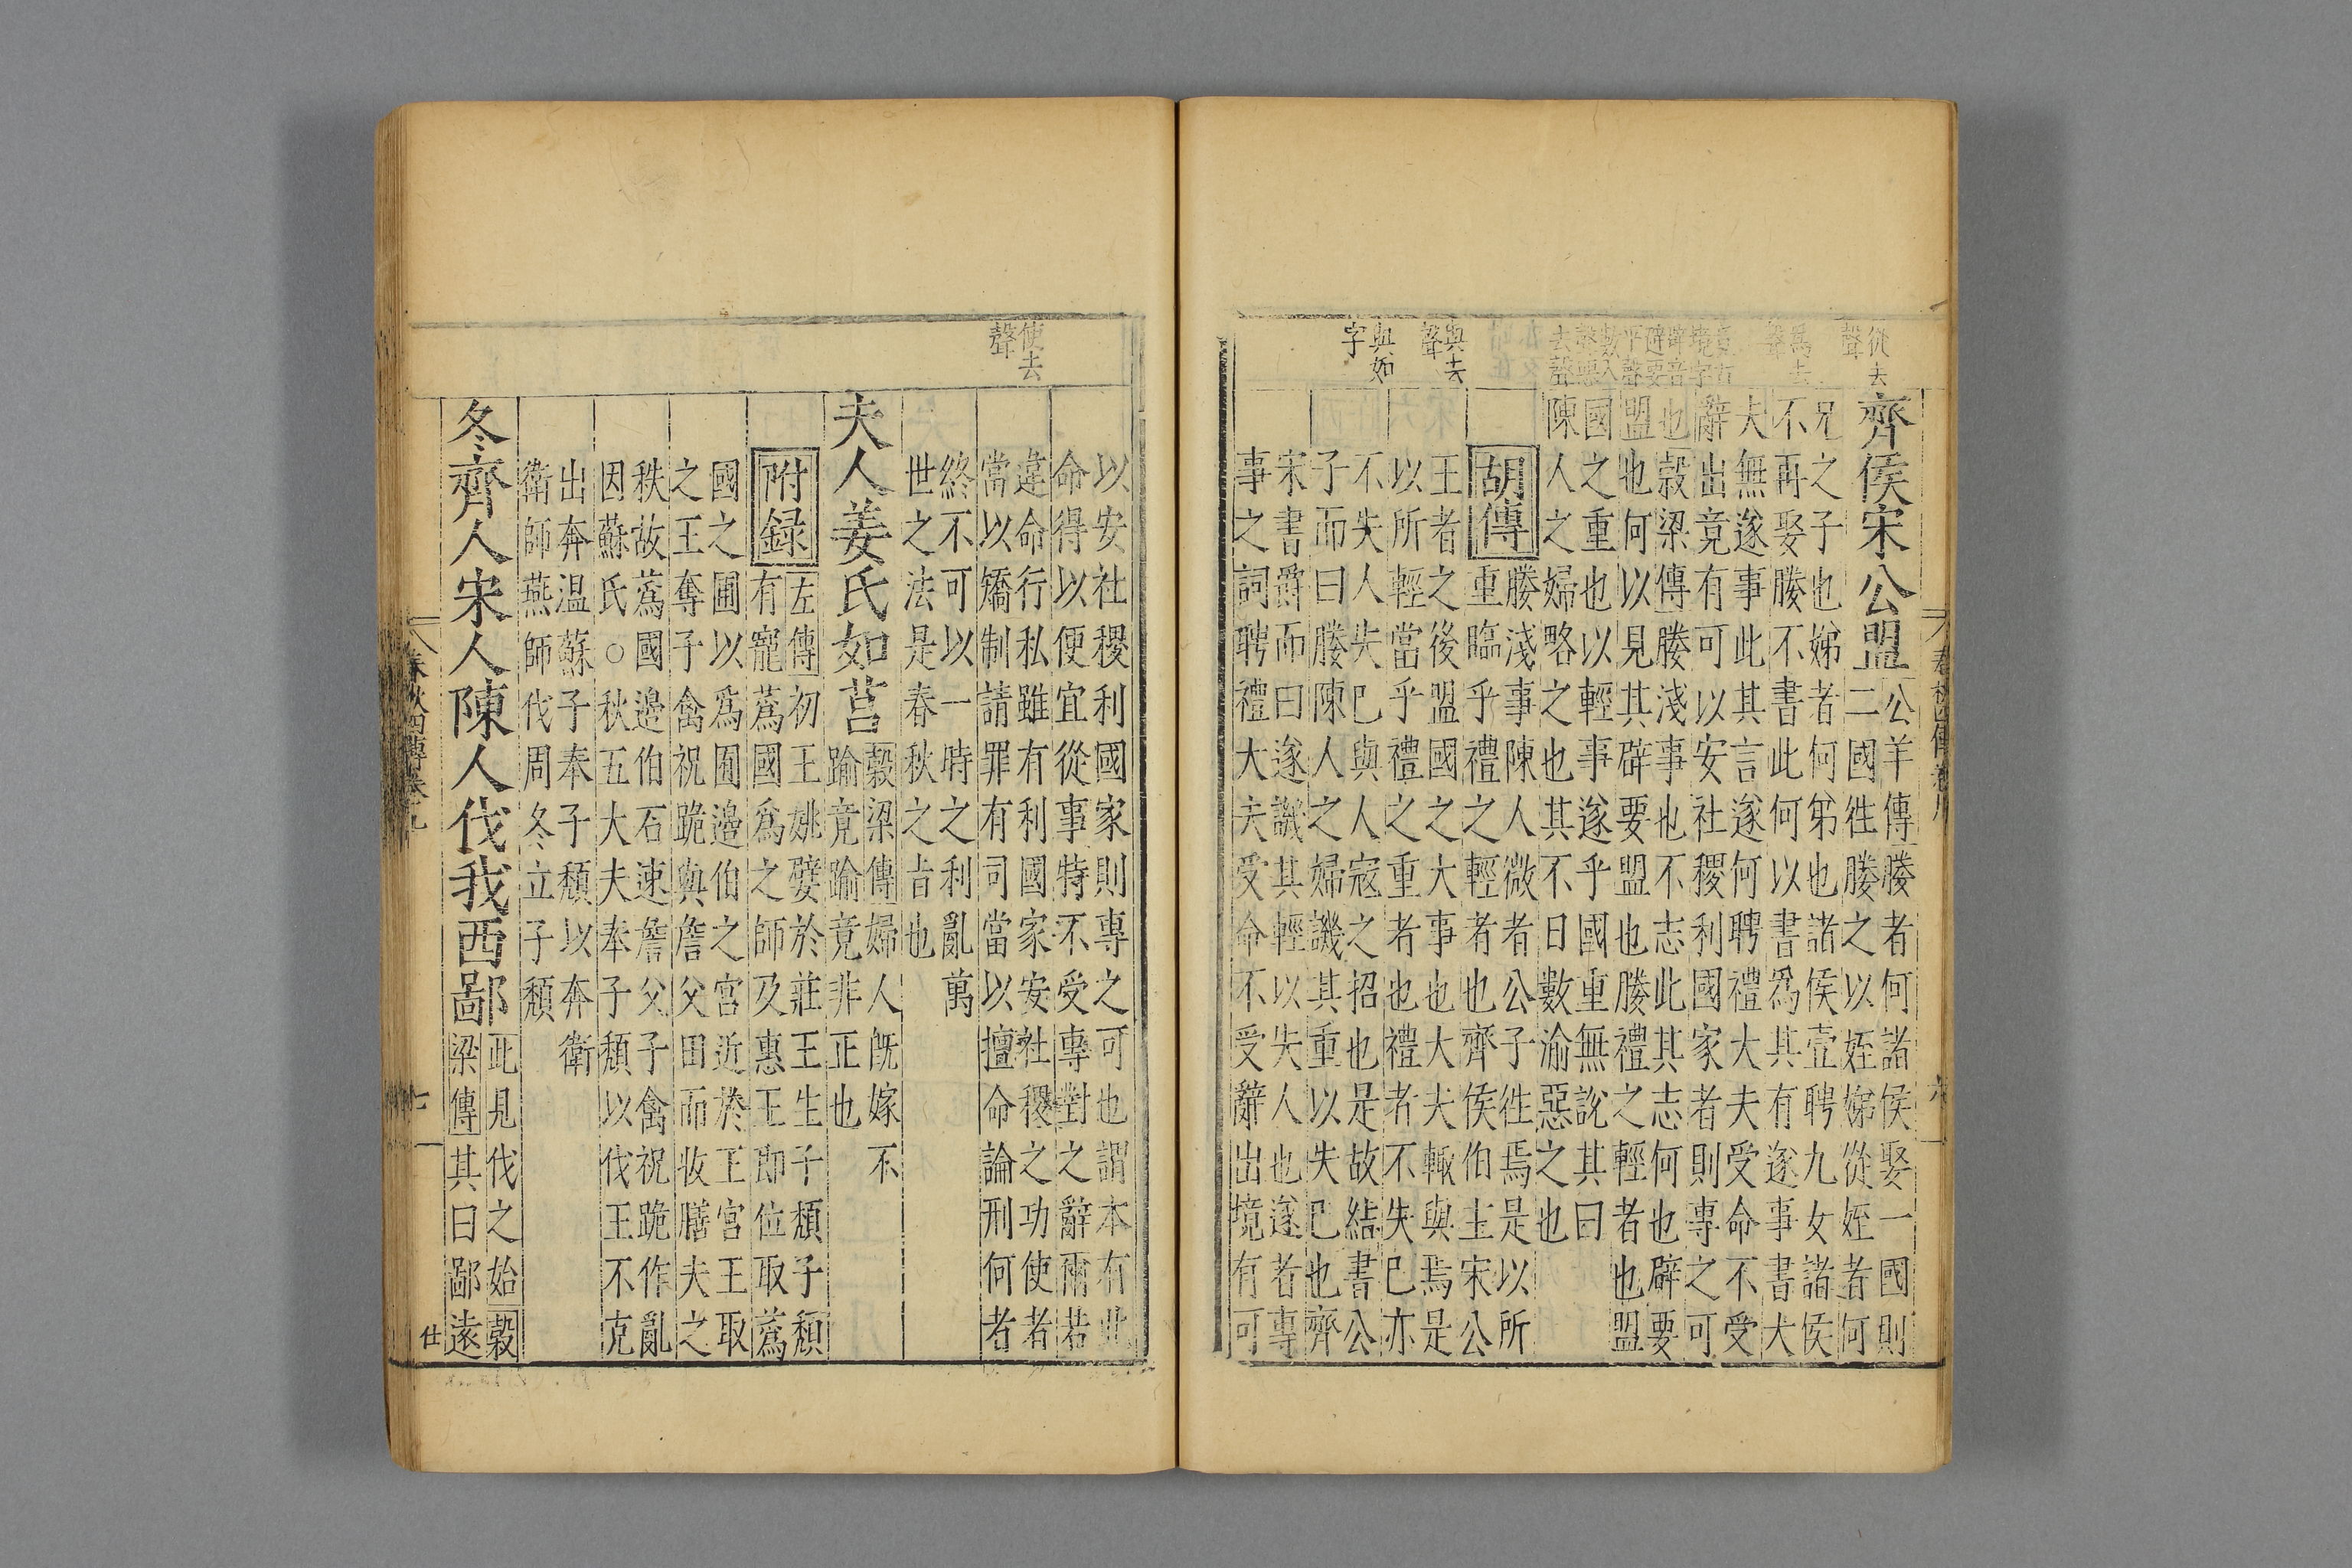 從去
聲
爲去
聲
竟古
境字
辟音
避要
平聲
數入
聲惡
去聲
與去
聲
與如
字
齊侯宋公盟
公羊傳媵者何諸侯娶一國則
二國徃媵之以姪娣從姪者何
兄之子也娣者何弟也諸侯壹聘九女諸侯
不再娶媵不書此何以書爲其有遂事書大
夫無遂事此其言遂何聘禮大夫受命不受
辭出竟有可以安社稷利國家者則專之可
也穀梁傳媵淺事也不志此其志何也辟要
盟也何以見其辟要盟也媵禮之輕者也盟
國之重也以輕事遂乎國重無說其曰
陳人之婦略之也其不日數渝惡之也
胡傳
媵淺事陳人微者公子徃焉是以所
重臨乎禮之輕者也齊侯伯主宋公
王者之後盟國之大事也大夫輙與焉是
以所輕當乎禮之重者也禮者不失已亦
不失人失已與人寇之招也是故結書公
子而曰媵陳人之婦譏其重以失已也齊
宋書爵而曰遂譏其輕以失人也遂者專
事之詞聘禮大夫受命不受辭出境有可
春秋四傳卷九
六
使去
聲
以安社稷利國家則專之可也謂本有此
命得以便宜從事特不受專對之辭爾若
違命行私雖有利國家安社稷之功使者
當以矯制請罪有司當以擅命論刑何者
終不可以一時之利亂萬
世之法是春秋之旨也
夫人姜氏如莒
穀梁傳婦人旣嫁不
踰竟踰竟非正也
附録
左傳初王姚嬖於莊王生子頹子頹
有寵蔿國爲之師及惠王即位取蔿
國之圃以爲囿邊伯之宮近於王宮王取
之王奪子禽祝跪與詹父田而收膳夫之
秩故蔿國邊伯石速詹父子禽祝跪作亂
因蘇氏○秋五大夫奉子頹以伐王不克
出奔温蘇子奉子頹以奔衛
衛師燕師伐周冬立子頹
冬齊人宋人陳人伐我西鄙
此見伐之始穀
梁傳其曰鄙遠
春秋四傳卷九
七
仕